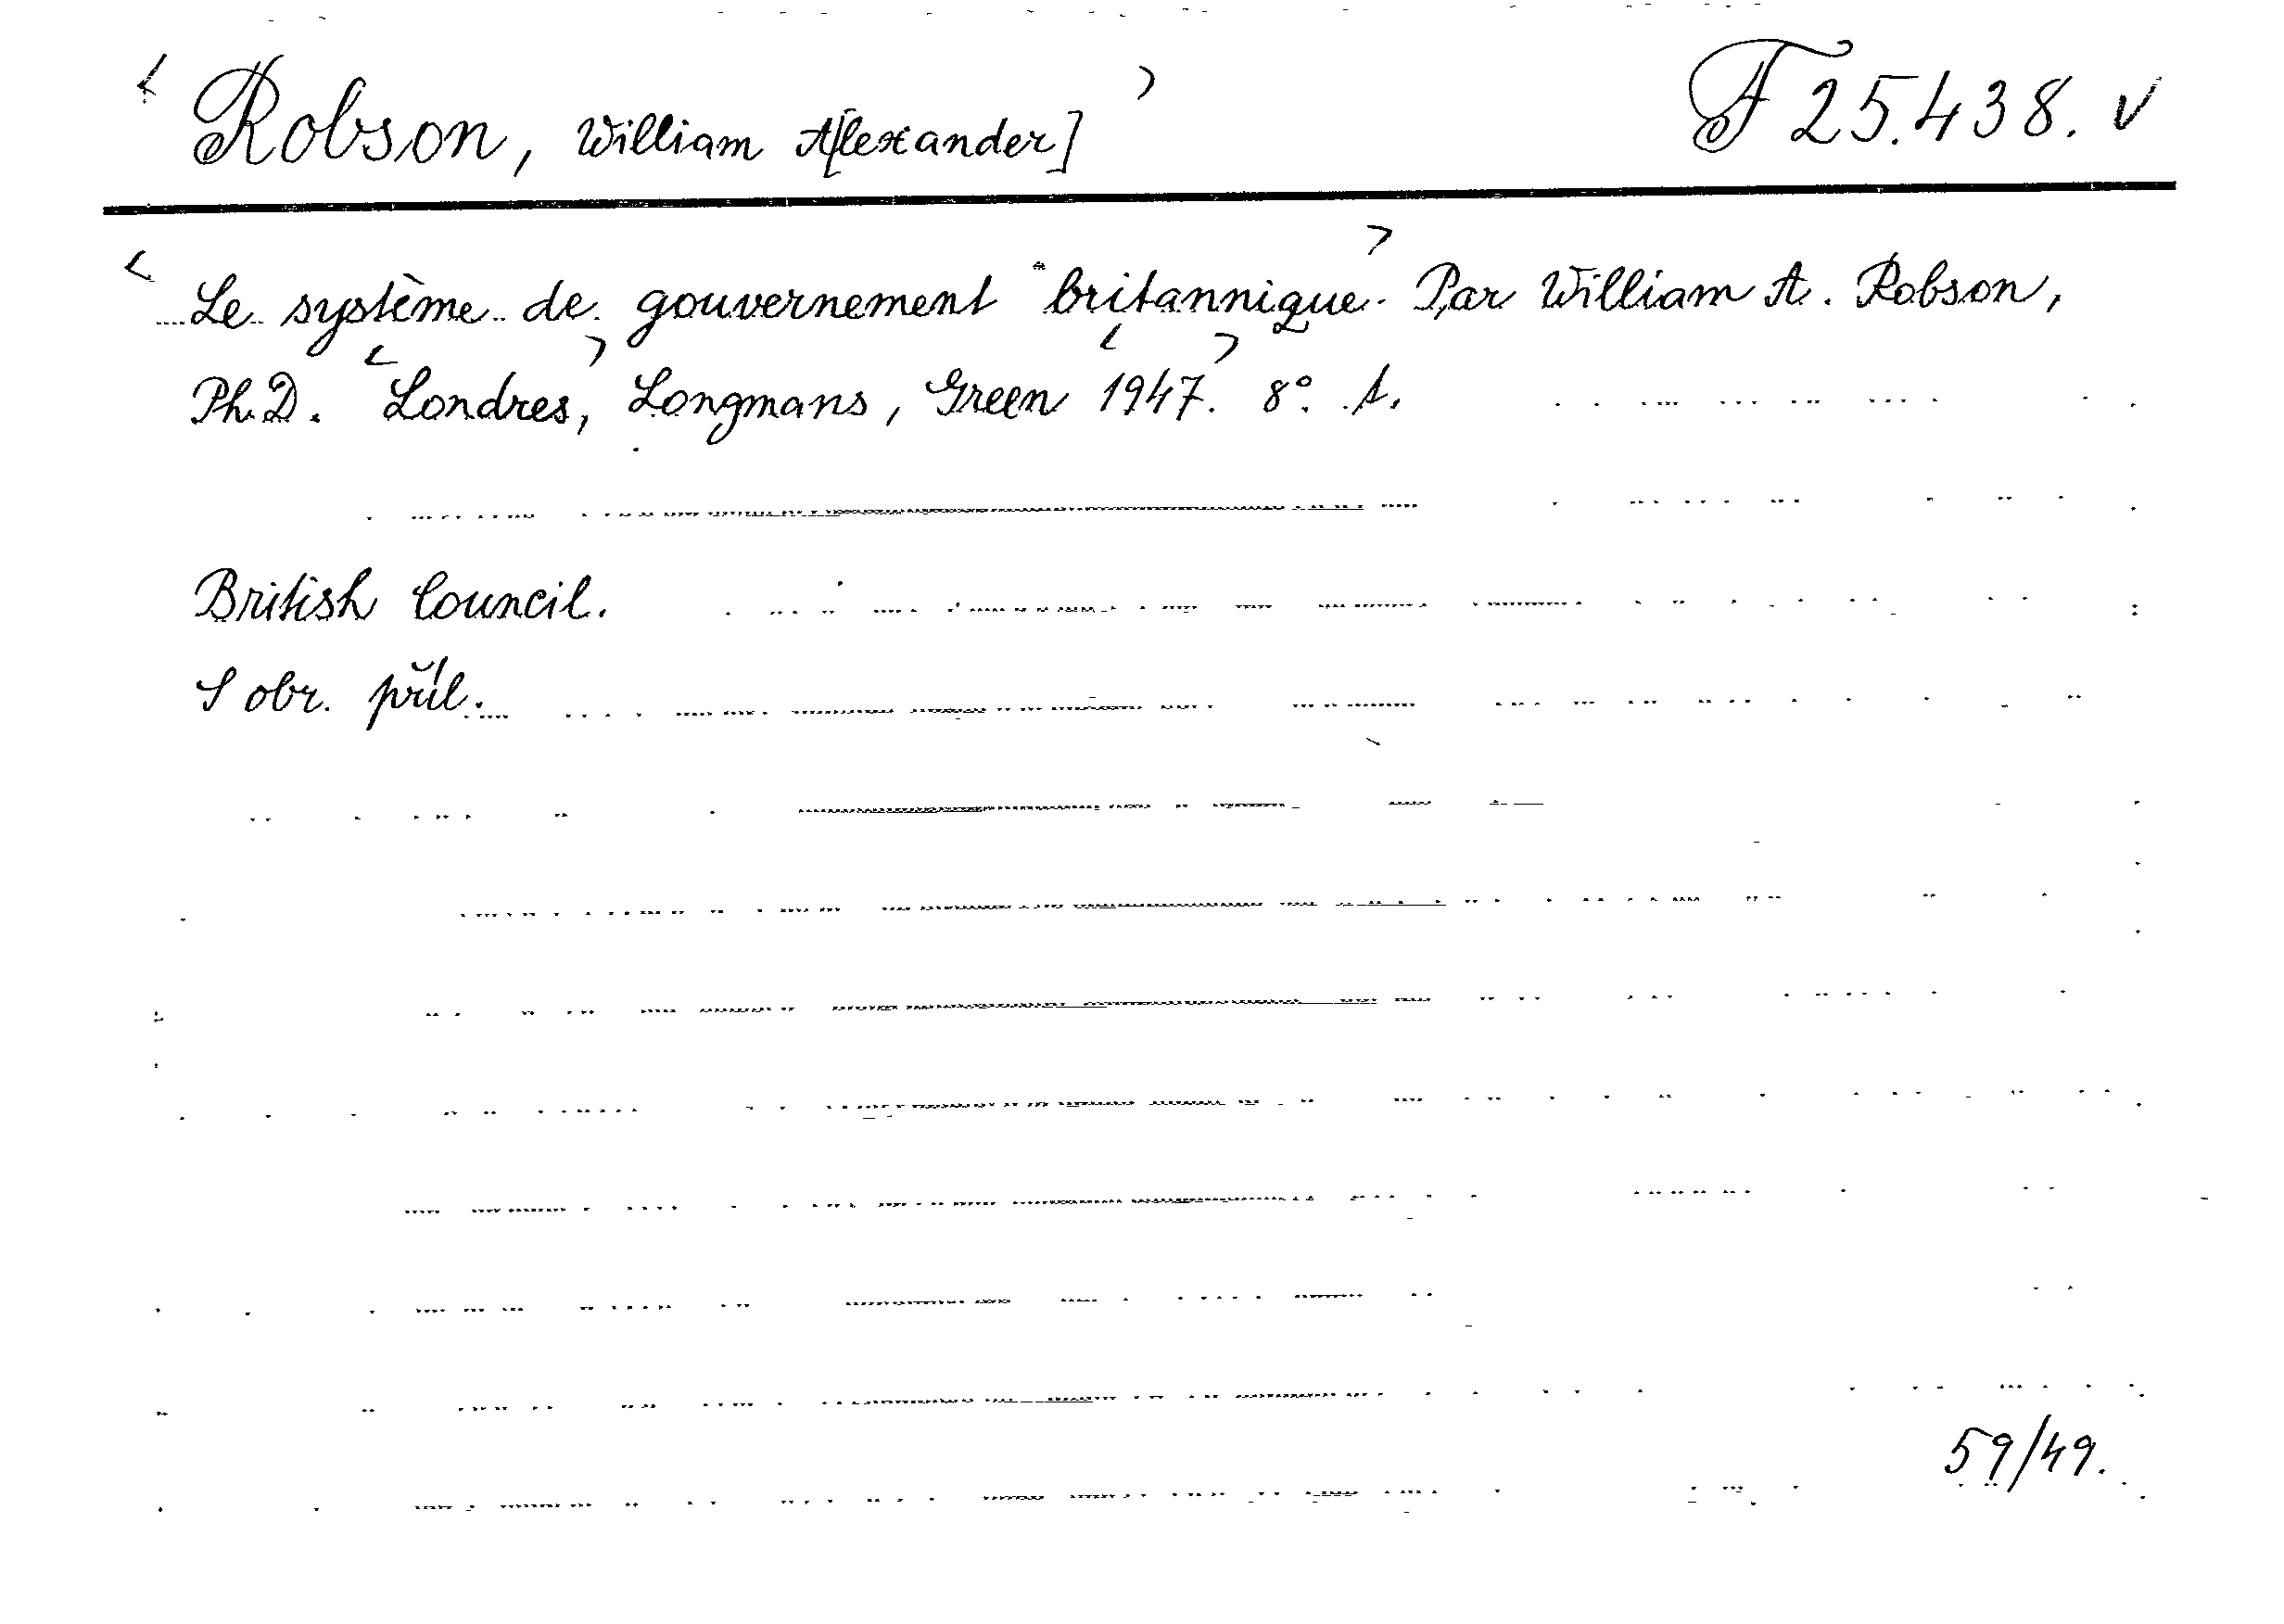 < Robson, William A[lexander] > F 25.438. v
< Le système de gouvernement britannique. > Par William A. Robson,
Ph.D. < Londres, > Longmans, Green < 1947. > 8°. s.
British Council.
S obr. příl.
59/49.